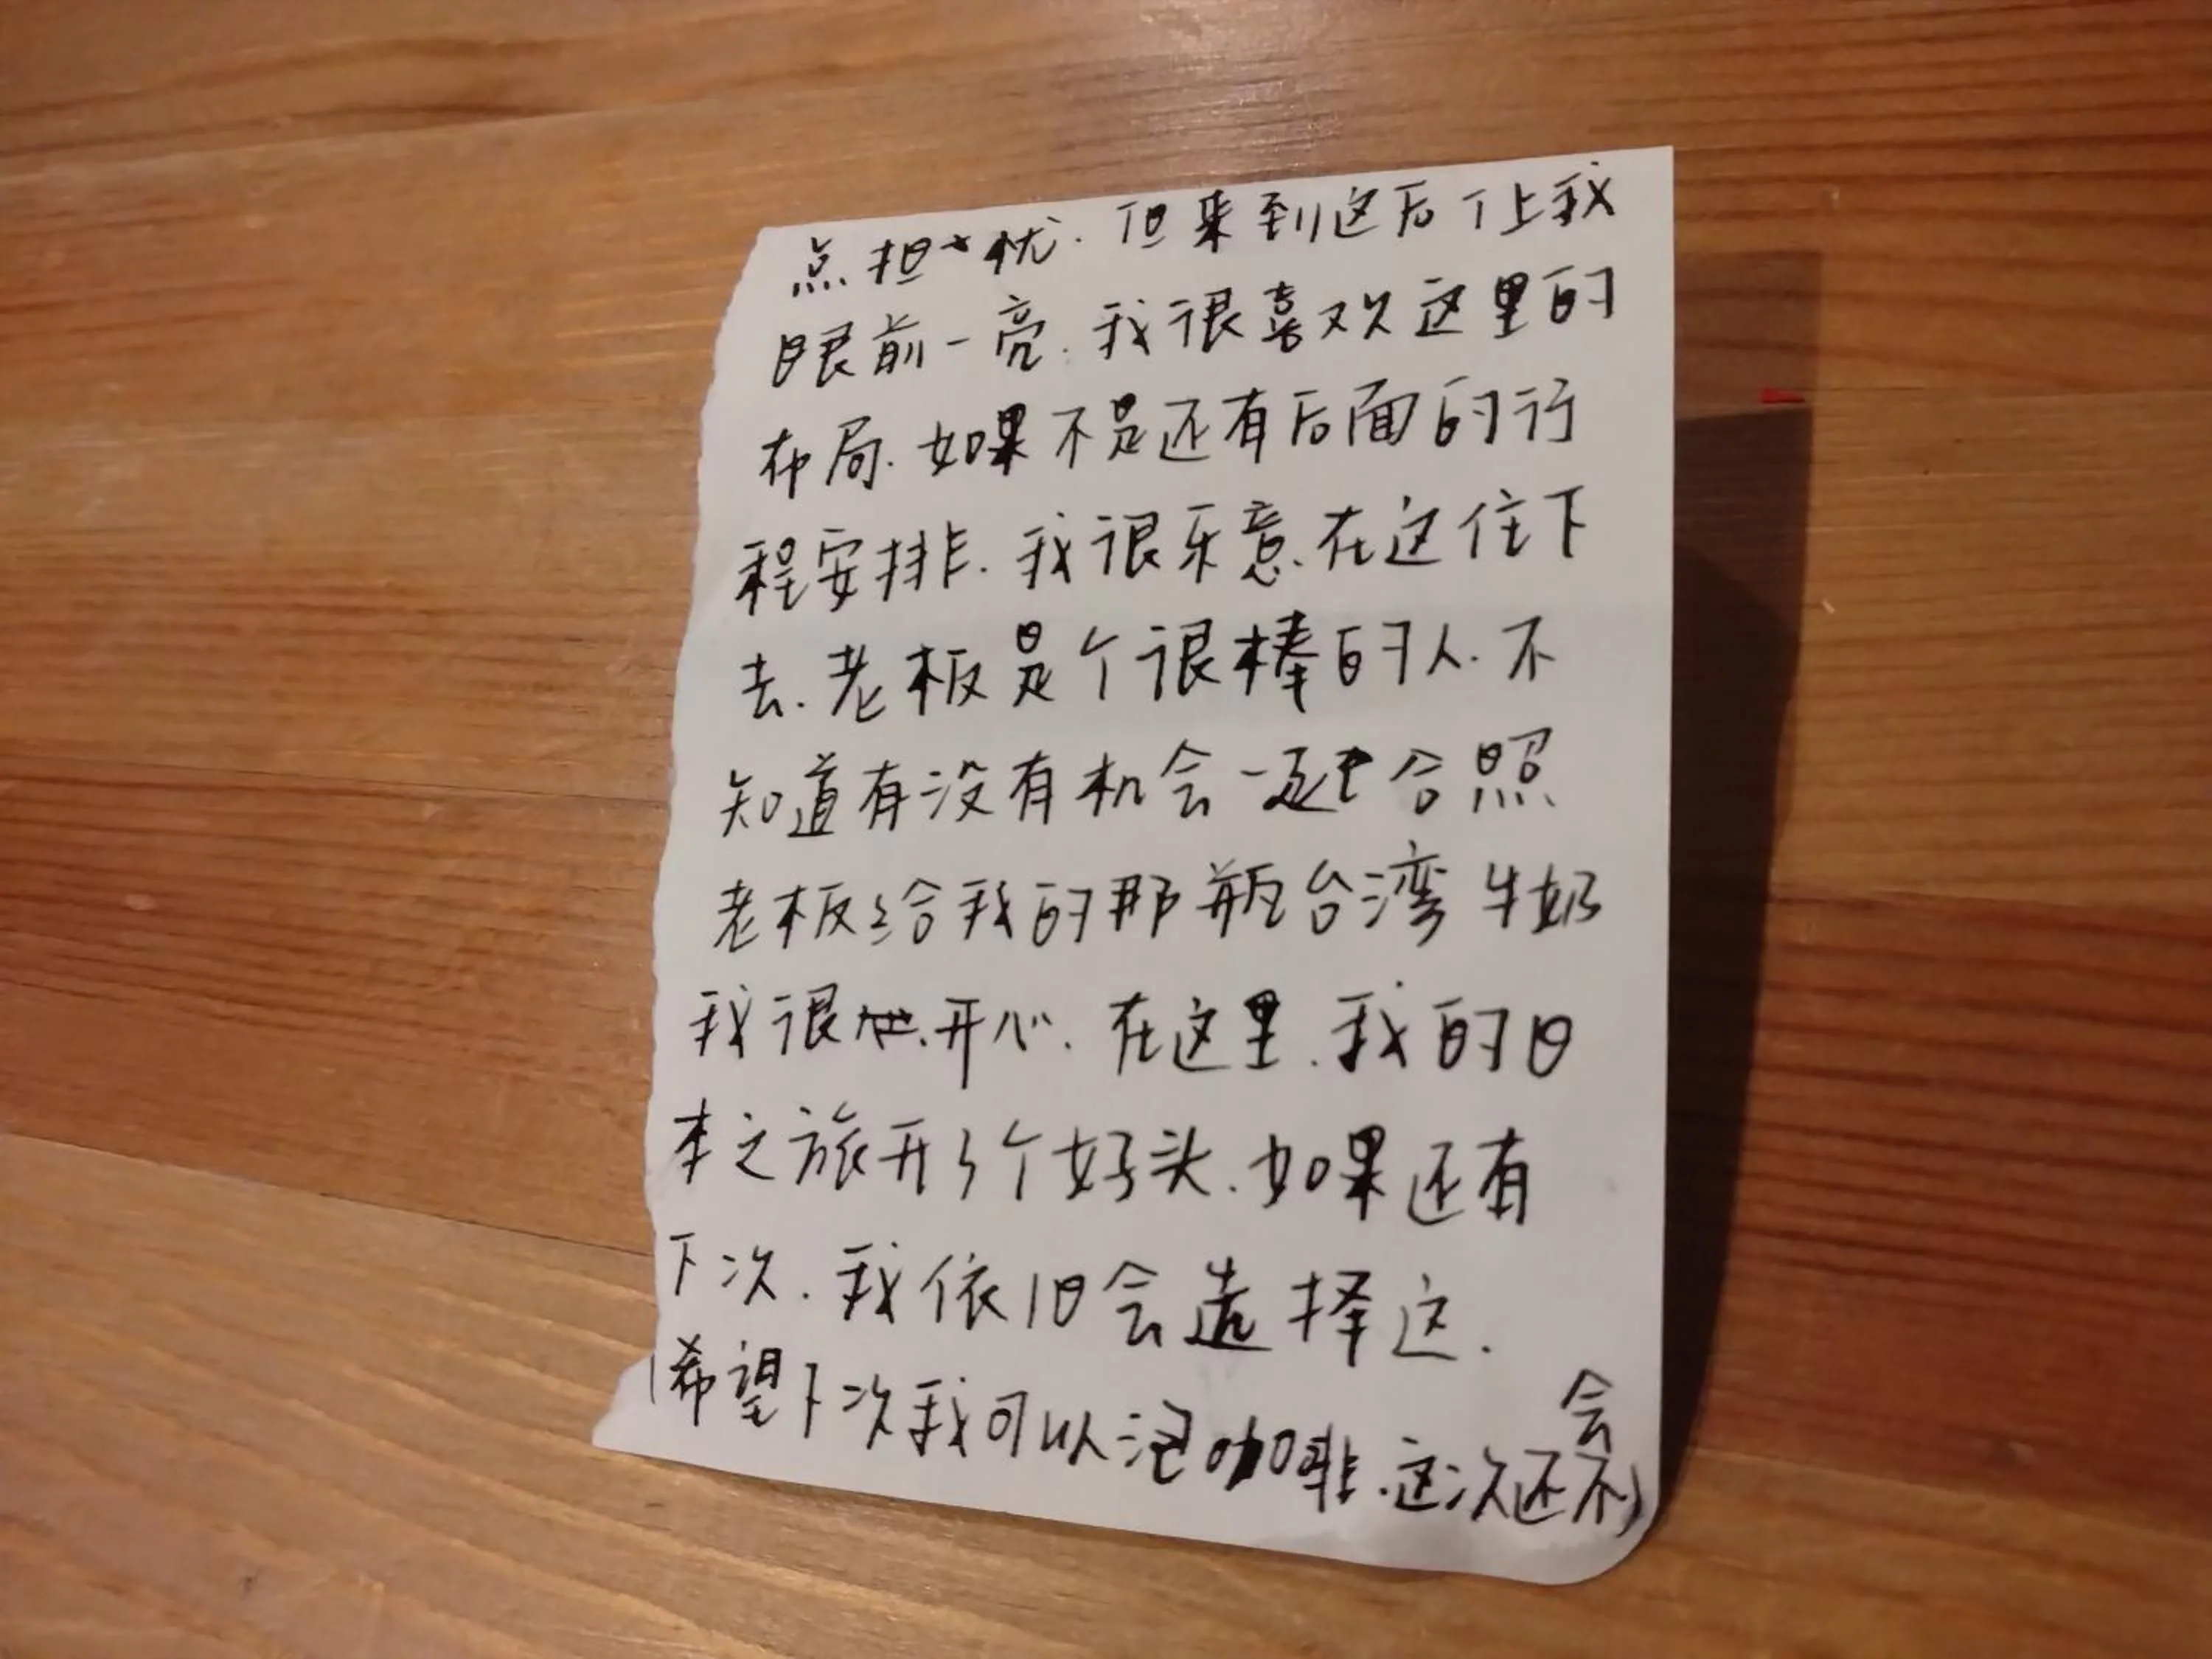 点担忧.但来到这后让我
眼前一亮.我很喜欢这里的
布局.如果不是还有后面的行
程安排.我很乐意.在这住下
去.老板是个很棒的人.不
知道有没有机会一起合照
老板给我的那瓶台湾牛奶
我很开心.在这里.我的日
本之旅开了个好头.如果还有
下次.我依旧会选择这.
(希望下次我可以泡咖啡.这次还不会)